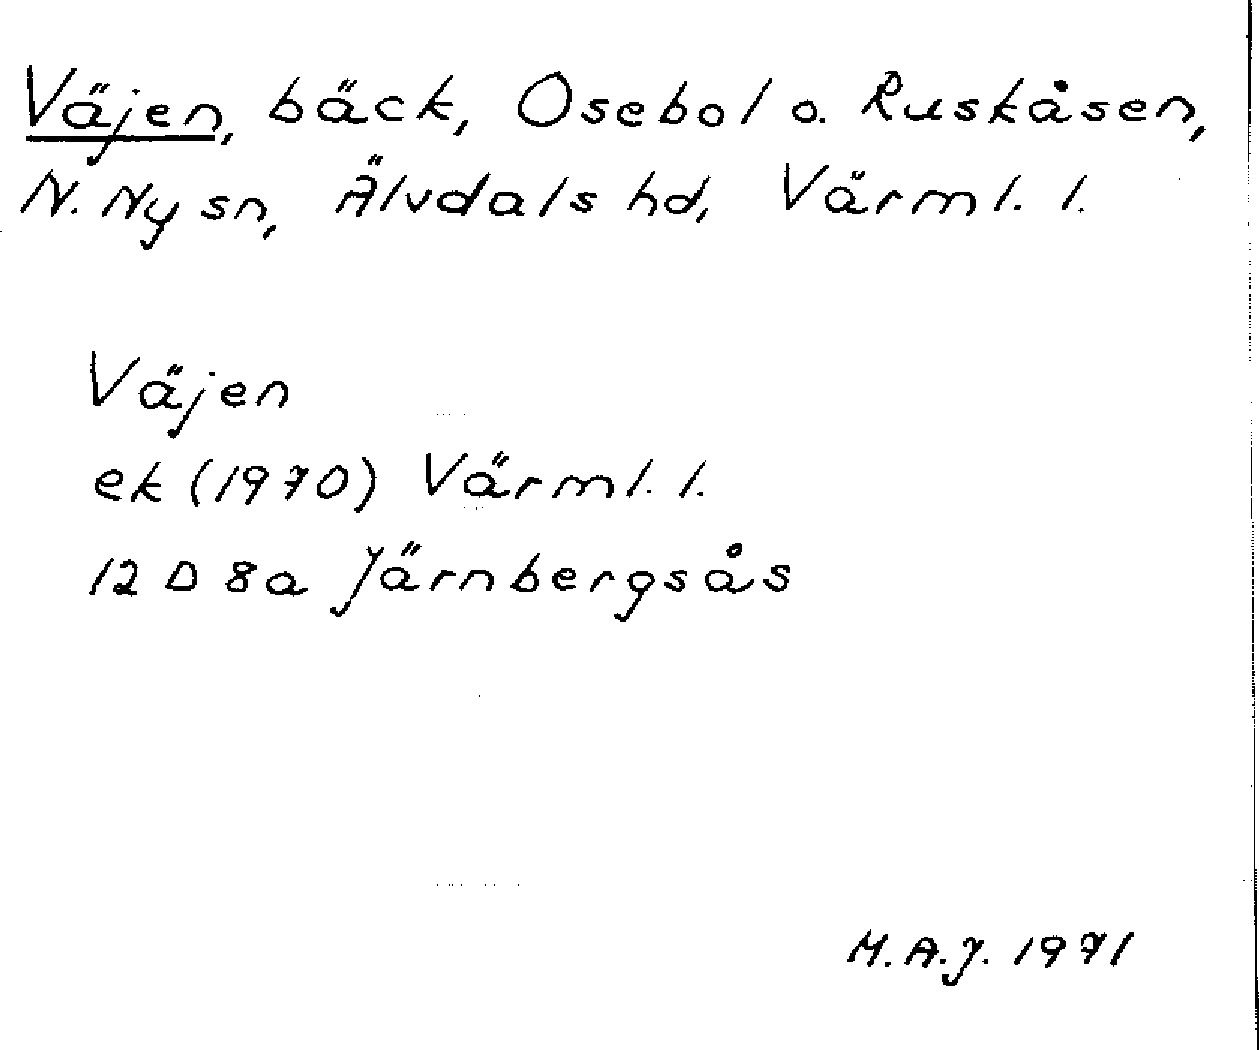 Väjen, bäck, Osebol o. Ruskåsen,
N. Ny sn, Älvdals hd, Värml. l.
Väjen
ek (1970) Värml. l.
12 D 8a Järnbergsås
M.A.J. 1971